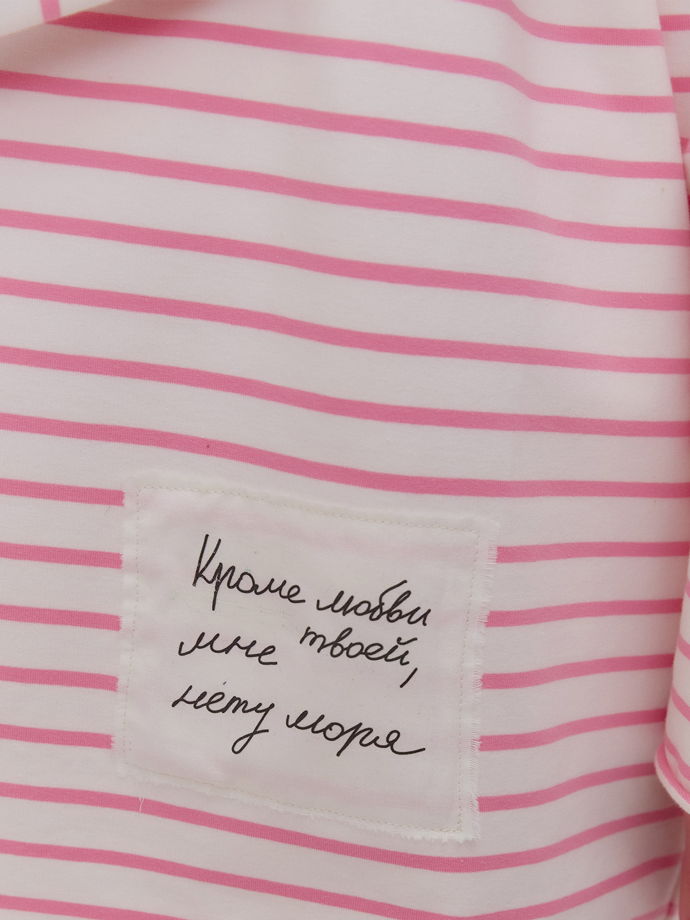 Кроме любви
мне твоей,
нету моря